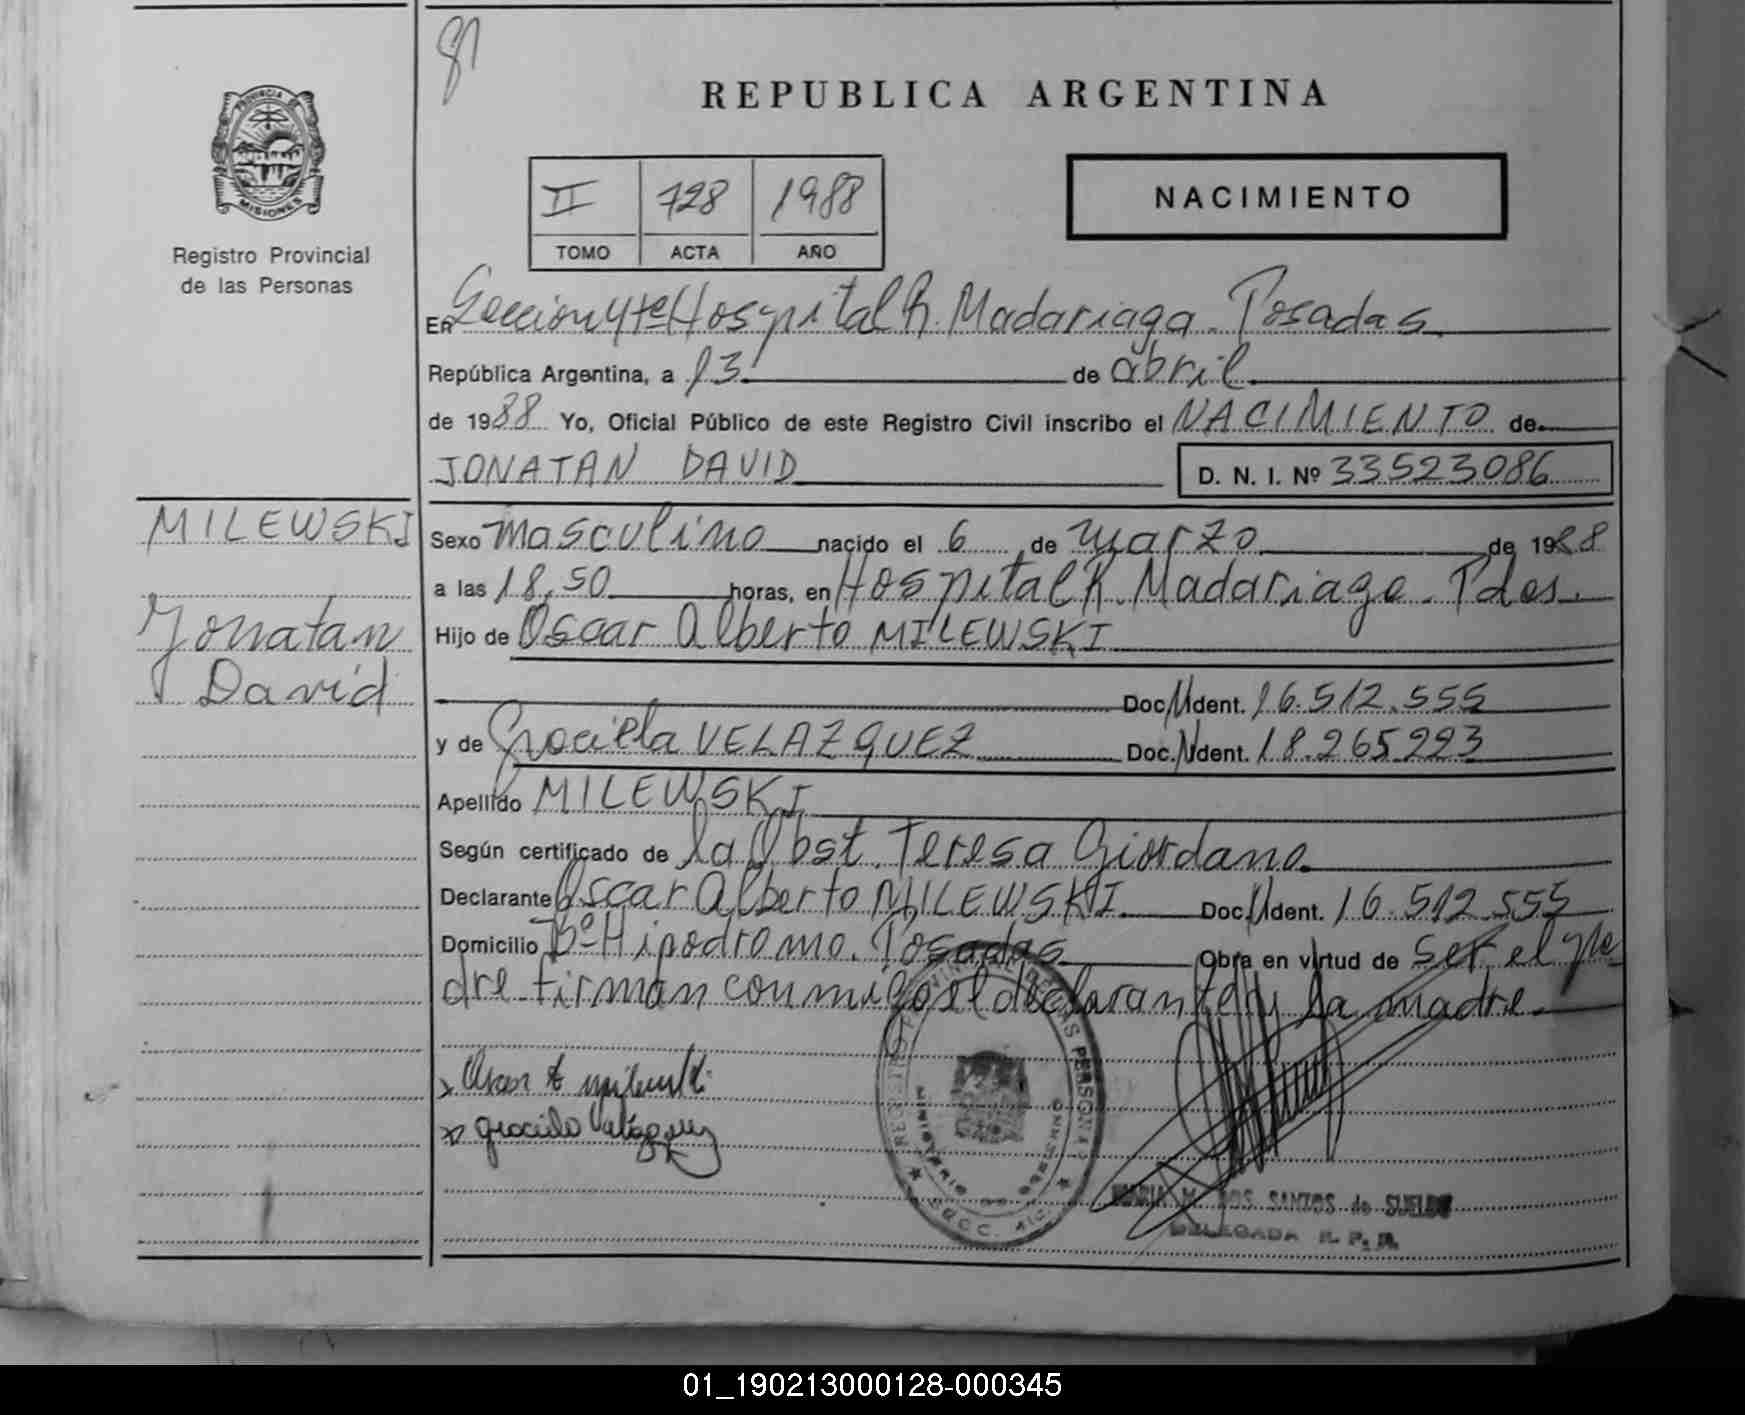 81
REPUBLICA ARGENTINA
PROVINCIA DE
MISIONES
Registro Provincial
de las Personas
II 728 1988
TOMO ACTA AÑO
NACIMIENTO
En Sección 4ta Hospital R. Madariaga. Posadas
República Argentina, a 13 de abril
de 1988 Yo, Oficial Público de este Registro Civil inscribo el NACIMIENTO de
JONATAN DAVID D. N. I. Nº 33523086
MILEWSKI
Jonatan
David
Sexo masculino nacido el 6 de marzo de 1988
a las 18,50 horas, en Hospital R. Madariaga. Pdas.
Hijo de Oscar Alberto MILEWSKI
Doc. Ident. 16.512.555
y de Graciela VELAZQUEZ Doc. Ident. 18.265.223
Apellido MILEWSKI
Según certificado de la Obst. Teresa Giordano
Declarante Oscar Alberto MILEWSKI Doc. Ident. 16.512.555
Domicilio Bº Hipodromo. Posadas Obra en virtud de ser el pa
dre firman conmigo el declarante y la madre.
Oscar A Milewski
Graciela Velazquez
MARIA M. DOS SANTOS de SUELDO
DELEGADA R. P. P.
01_190213000128-000345